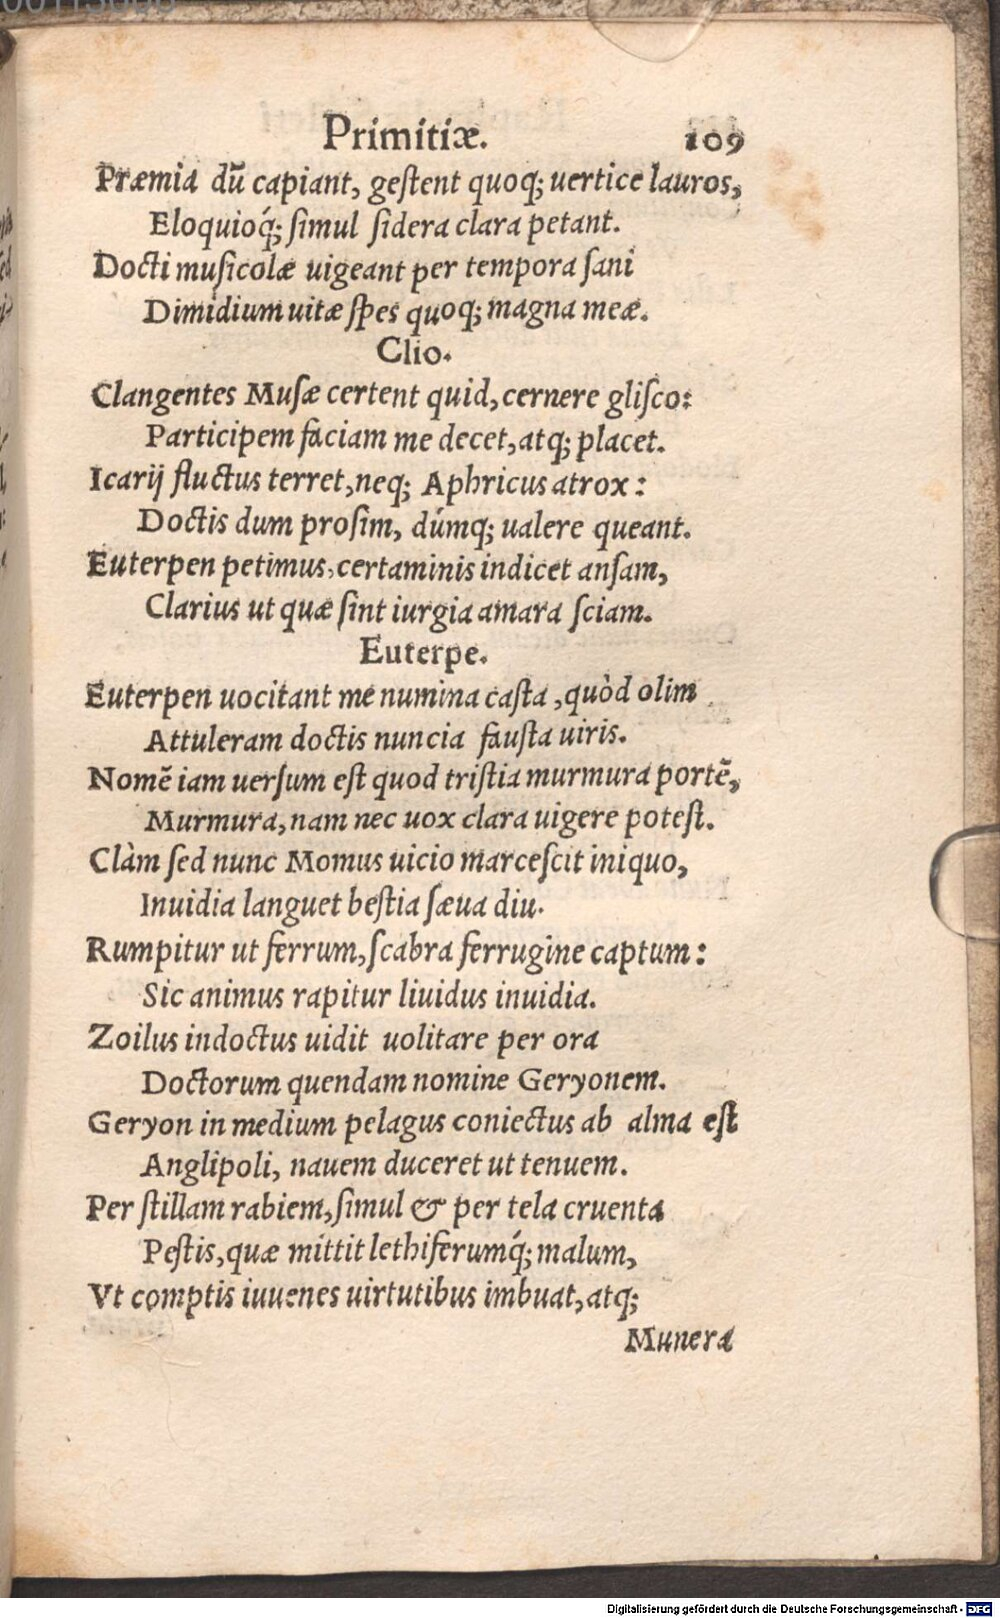 Primitiæ. 109
Præmia dū capiant, geſtent quoq; uertice lauros,
Eloquioq́; ſimul ſidera clara petant.
Docti muſicolæ uigeant per tempora ſani
Dimidium uitæ ſpes quoq; magna meæ.
Clio.
Clangentes Muſæ certent quid, cernere gliſco:
Participem faciam me decet, atq; placet.
Icarij fluctus terret, neq; Aphricus atrox:
Doctis dum proſim, dúmq; ualere queant.
Euterpen petimus, certaminis indicet anſam,
Clarius ut quæ ſint iurgia amara ſciam.
Euterpe.
Euterpen uocitant me numina caſta, quòd olim
Attuleram doctis nuncia fauſta uiris.
Nomē iam uerſum eſt quod triſtia murmura portē,
Murmura, nam nec uox clara uigere poteſt.
Clàm ſed nunc Momus uicio marceſcit iniquo,
Inuidia languet beſtia ſæua diu.
Rumpitur ut ferrum, ſcabra ferrugine captum:
Sic animus rapitur liuidus inuidia.
Zoilus indoctus uidit uolitare per ora
Doctorum quendam nomine Geryonem.
Geryon in medium pelagus coniectus ab alma eſt
Anglipoli, nauem duceret ut tenuem.
Per ſtillam rabiem, ſimul & per tela cruenta
Peſtis, quæ mittit lethiferumq́; malum,
Vt comptis iuuenes uirtutibus imbuat, atq;
Munera
Digitalisierung gefördert durch die Deutsche Forschungsgemeinschaft - DFG